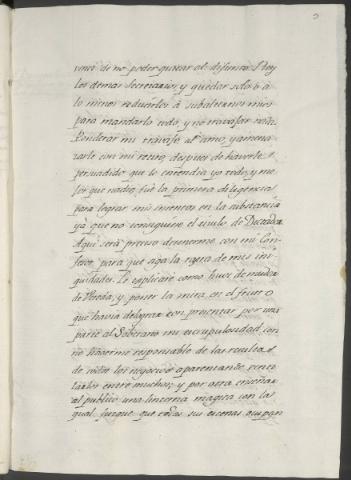 vencí de no poder quitar al difunto Rey
los demas Secretarios, y quedar solo ó à
lo menos reducirlos à subalternos mios
para mandarlo todo, y no travajar nada.
Ponderar mi travajo al amo, y amena-
zarle con mi retiro, despues de haverle
persuadido que lo entendia yo todo, y me-
jor que nadie, fué la primera diligencia
para lograr mis intentos en la substancia
yà que no consiguiese el titulo de
Aqui será preciso detenerme con mi Con-
fesor, para que oiga la raiz de mis ini-
quidades. Le explicaré como huve de mudar
de Vereda, y poner la mira en el
que havia de lograr con presentar por una
parte al Soberano mi escrupulosidad con
no hacerme responsable de las resultas
de todos los negocios aparentando
entre muchos; y por otra enseñar
al publico una linterna magica con la
qual juzgue que todas sus escenas ocupan